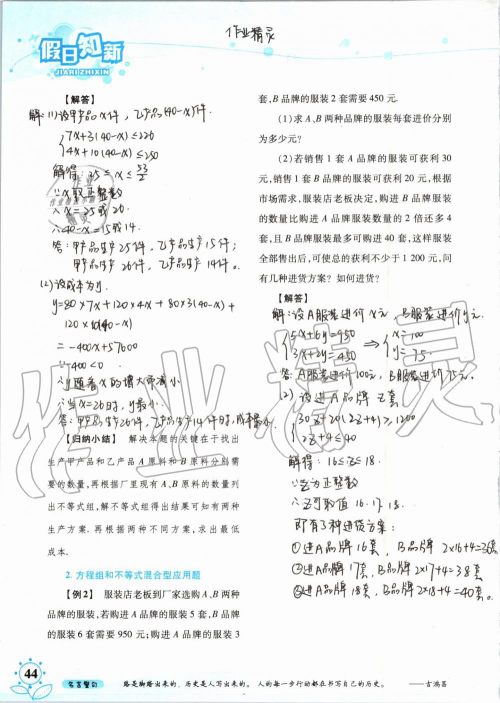 假日知新
JIARIZHIXIN
作业精灵
【解答】
解：(1)设甲产品x件，乙产品(40-x)件.
{7x+3(40-x)≤226
4x+10(40-x)≤250
解得：25≤x≤53/2
∵x取正整数
∴x=25或26.
∴40-x=15或14.
答：甲产品生产25件，乙产品生产15件；
甲产品生产26件，乙产品生产14件。
(2)设成本为y.
y=80×7x+120×4x+80×3(40-x)+
120×10(40-x)
=-400x+57600
∵-400<0
∴y随着x的增大而减小
∴当x=26时，y最小.
答：甲产品生产26件，乙产品生产14件时，成本最小.
【归纳小结】 解决本题的关键在于找出
生产甲产品和乙产品A原料和B原料分别需
要的数量，再根据厂里现有A、B原料的数量列
出不等式组，解不等式组得出结果可知有两种
生产方案. 再根据两种不同方案，求出最低
成本.
2. 方程组和不等式混合型应用题
【例2】 服装店老板到厂家选购A、B两种
品牌的服装，若购进A品牌的服装5套，B品牌
的服装6套需要950元；购进A品牌的服装3
套，B品牌的服装2套需要450元.
(1)求A、B两种品牌的服装每套进价分别
为多少元？
(2)若销售1套A品牌的服装可获利30
元，销售1套B品牌的服装可获利20元，根据
市场需求，服装店老板决定，购进B品牌服装
的数量比购进A品牌服装数量的2倍还多4
套，且B品牌服装最多可购进40套，这样服装
全部售出后，可使总的获利不少于1 200元，问
有几种进货方案？如何进货？
【解答】
解：设A服装进价x元，B服装进价y元.
{5x+6y=950
3x+2y=450 ⇒ {x=100
y=75
答：A服装进价100元，B服装进价75元.
(2)设进A品牌z套
{30z+20(2z+4)≥1200
2z+4≤40
解得：16≤z≤18.
∵z为正整数
∴z可取值16.17.18.
即有3种进货方案：
①进A品牌16套，B品牌2×16+4=36套
②进A品牌17套，B品牌2×17+4=38套
③进A品牌18套，B品牌2×18+4=40套.
作业精灵
44
名言警句
路是脚踏出来的，历史是人写出来的。人的每一步行动都在书写自己的历史。 ——吉鸿昌